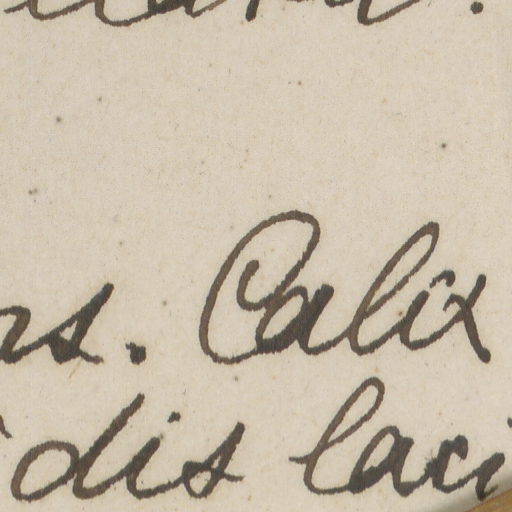 rs. Calix
dis laci